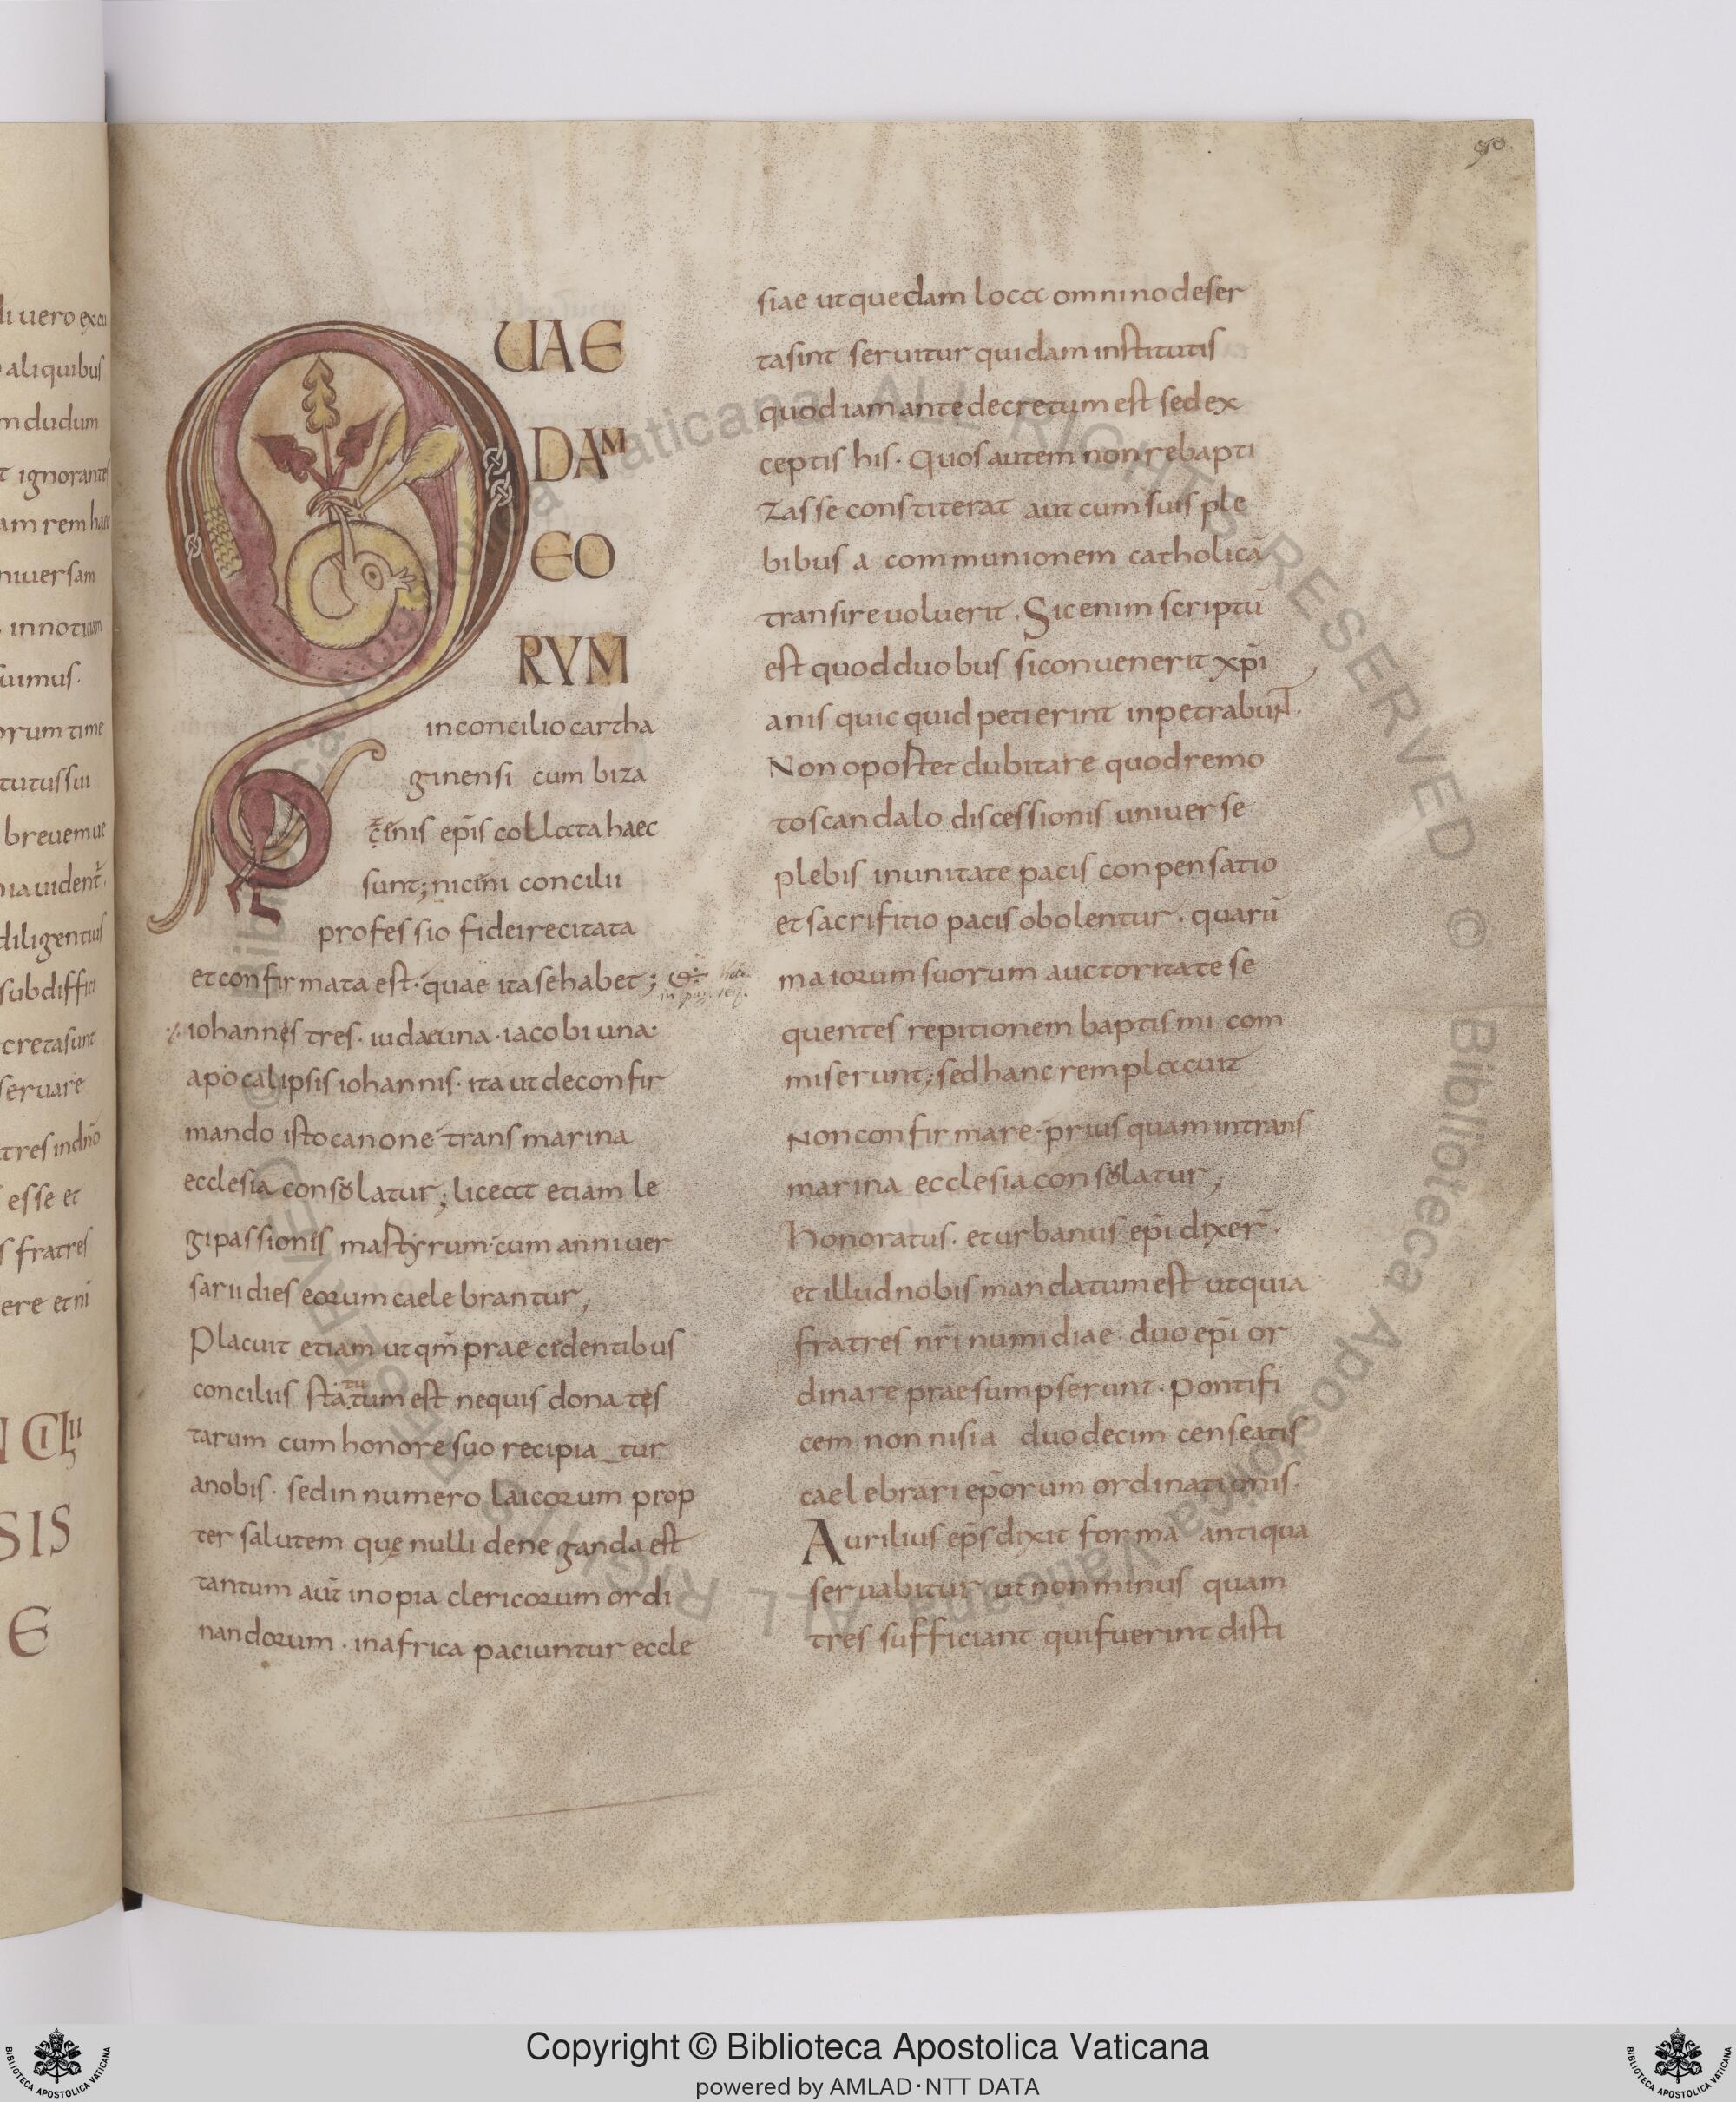 90.
di uero excu
aliquibus
m dudum
t ignorantes
am rem haec
niuersam
innotica
suimus.
orum time
titutus sui
breuem ue
nia uident̄.
diligentius
subdiffici
cretasunt
seruare
tres indn̄o
esse et
s fratres
ere et ni
N CILII
SIS
E
QUAE
DAM
EO
RVM
in concilio cartha
ginensi cum biza
cenis ep̄is collata haec
sunt; niceni concilii
professio fidei recitata
et confirmata est. quae ita se habet;
iohannes tres. iuda una. iacobi una.
apocalipsis iohannis. ita ut de confir
mando isto canone trans marina
ecclesia consolatur; liceat etiam le
gi passiones martyrum. cum anniuer
sarii dies eorum caelebrantur;
Placuit etiam ut qm̄ prae cedentibus
conciliis statutum est nequis donates
tarum cum honore suo recipia_tur
anobis. sed in numero laicorum prop
ter salutem que nulli deneganda est
tantum aut̄ inopia clericorum ordi
nandorum. in africa paciuntur eccle
siae ut quedam loca omnino deser
ta sint seruitur quidam institutis
quod iam ante decretum est sed ex
ceptis his. Quos autem non rebapti
zasse constiterat aut cum suis ple
bibus a communionem catholicā
transire uoluerit. Sic enim scriptū
est quod duobus si conuenerit xp̄i
anis quic quid petierint inpetrabunt.
Non oportet dubitare quod remo
to scandalo discessionis uniuerse
plebis in unitate pacis conpensatio
et sacrifitio pacis obolentur. quarū
maiorum suorum auctoritate se
quentes repitionem baptismi com
miserunt; sed hanc rem placuit
Non confirmare. prius quam in trans
marina ecclesia consolatur;
Honoratus. et urbanus ep̄i dixer̄.
et illud nobis mandatum est ut quia
fratres nr̄i numidiae. duo ep̄i or
dinare praesumpserunt. pontifi
cem non nisi a duodecim censeatis
caelebrari ep̄orum ordinationis.
Aurilius ep̄s dixit forma antiqua
seruabitur ut non minus quam
tres sufficiant qui fuerint disti
Copyright © Biblioteca Apostolica Vaticana
powered by AMLAD·NTT DATA
BIBLIOTECA APOSTOLICA VATICANA
BIBLIOTECA APOSTOLICA VATICANA
© Biblioteca Apostolica Vaticana ALL RIGHTS RESERVED © Biblioteca Apostolica Vaticana ALL RIGHTS RESERVED